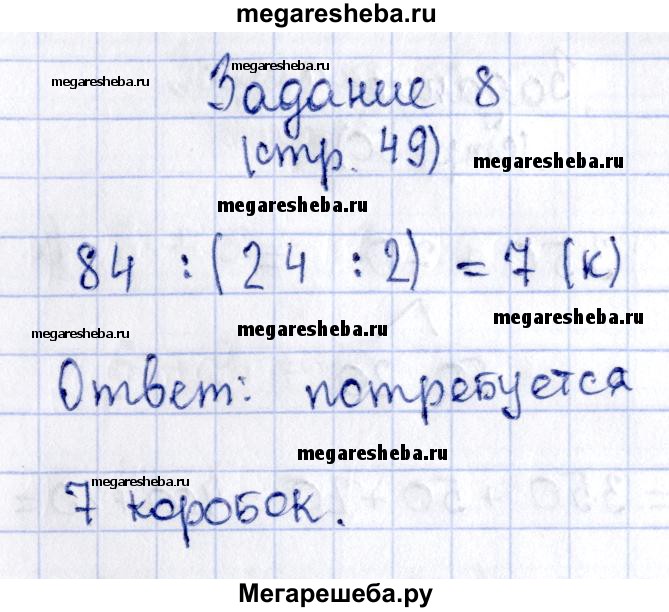 megaresheba.ru
megaresheba.ru
megaresheba.ru
Задание 8
(стр. 49)
megaresheba.ru
megaresheba.ru
84 : (24 : 2) = 7 (к)
megaresheba.ru
megaresheba.ru
megaresheba.ru
Ответ: потребуется
megaresheba.ru
megaresheba.ru
7 коробок.
Мегарешеба.ру